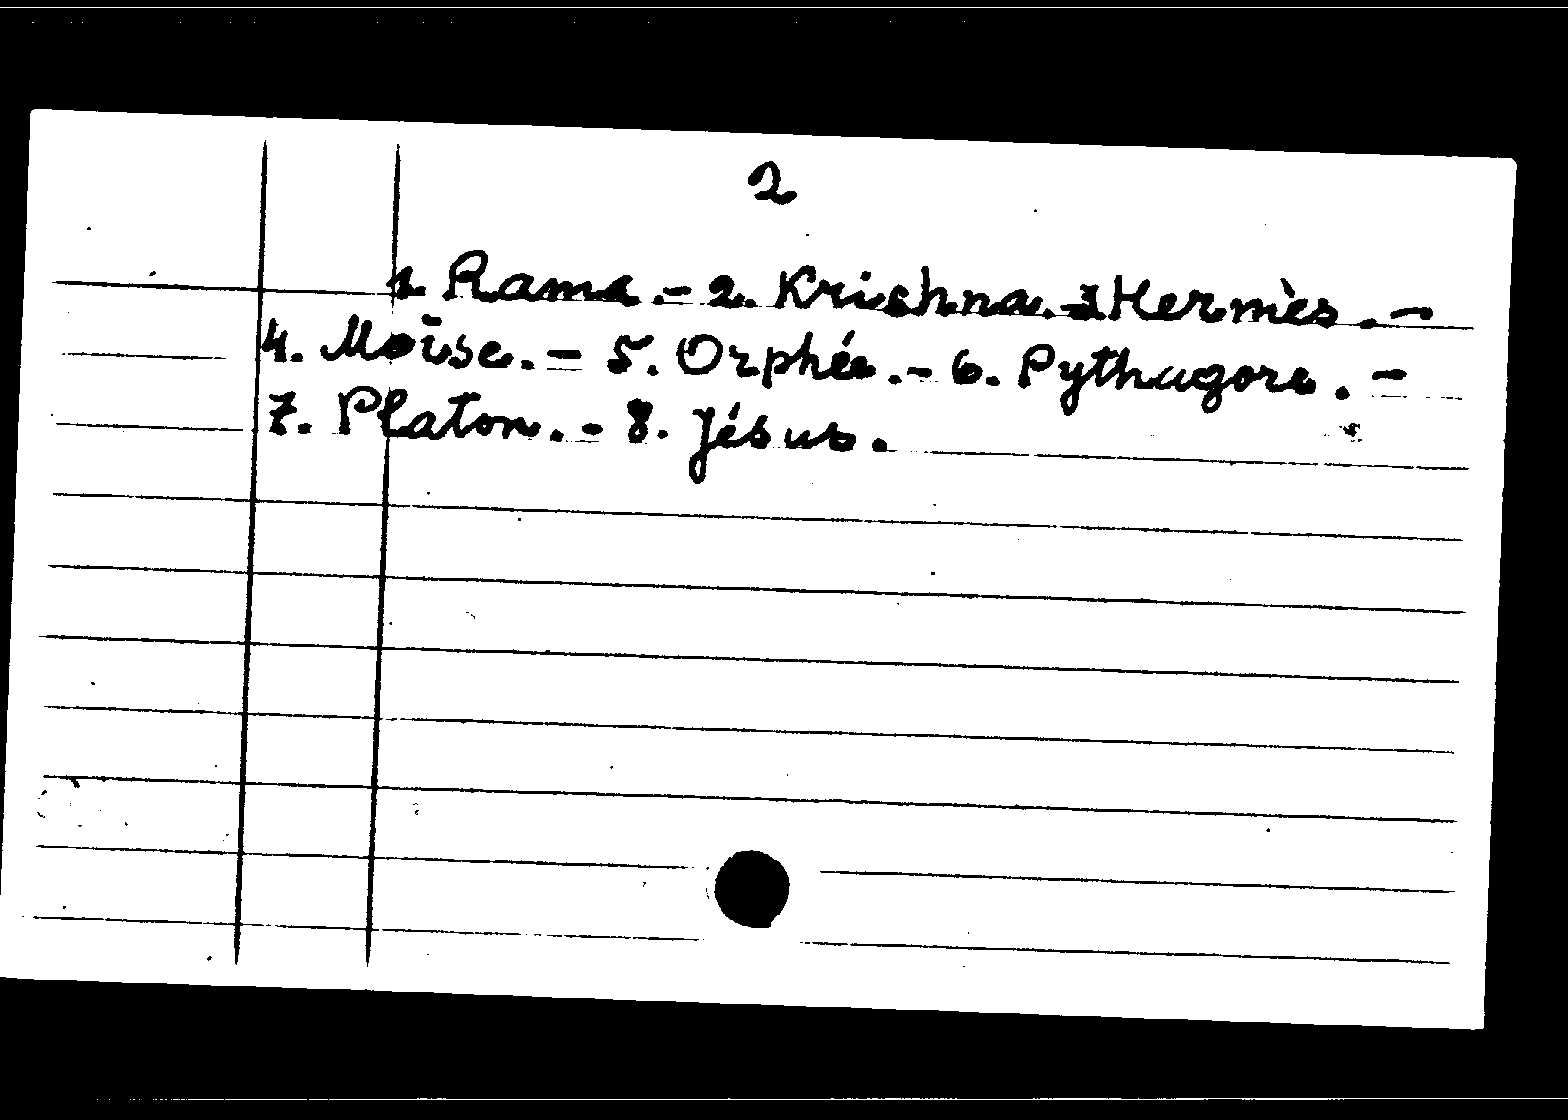 2
1. Rama. - 2. Krishna. - 3 Hermès. -
4. Moïse. - 5. Orphée. - 6. Pythagore. -
7. Platon. - 8. Jésus.